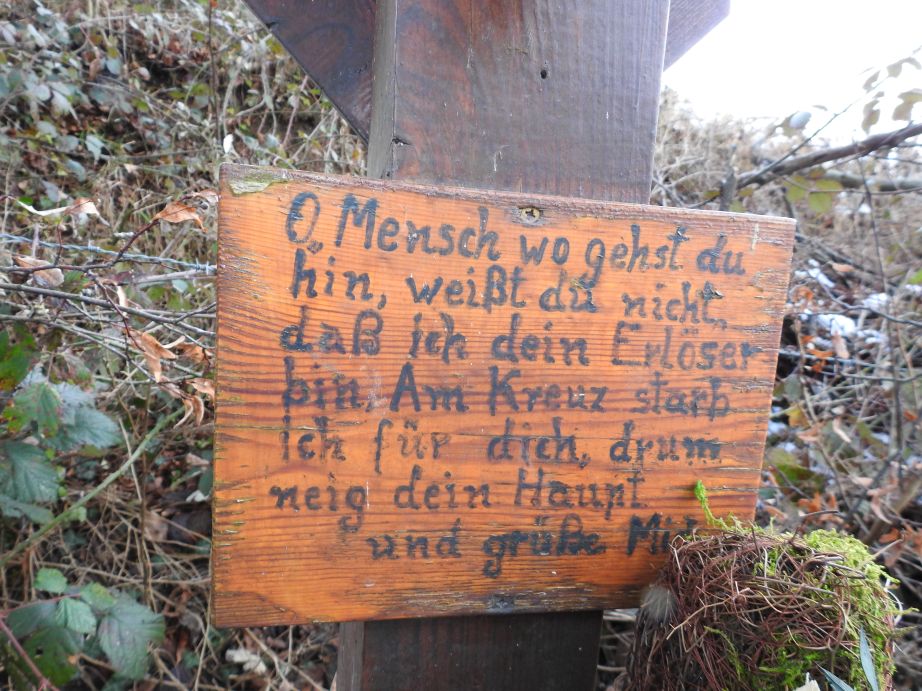 O Mensch wo gehst du
hin, weißt du nicht,
daß ich dein Erlöser
bin. Am Kreuz starb
ich für dich, drum
neig dein Haupt
und grüße Mich